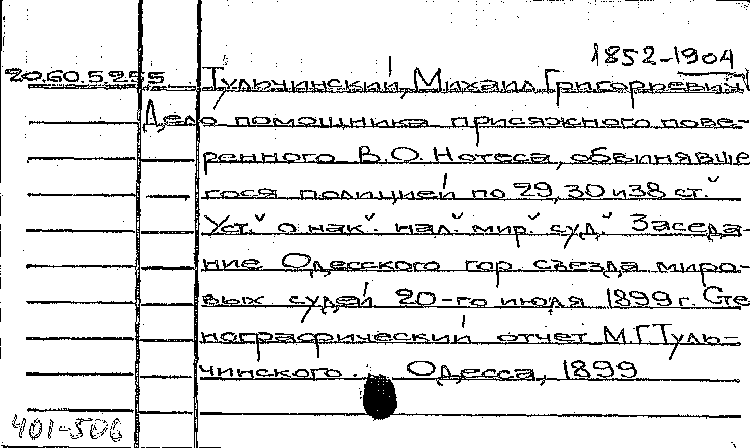 1852-1904
20.60.5.255 Тульчинский, Михаил Григорьевич
Дело помощника присяжного пове-
ренного В.О. Нотеса, обвинявше
гося полицией по 29, 30 и 38 ст.
Уст. о нак. нал. мир. суд. Заседа-
ние Одесского гор. съезда миро-
вых судей 20-го июля 1899 г. Сте
нографический отчет М.Г. Туль-
чинского. Одесса, 1899
401-506